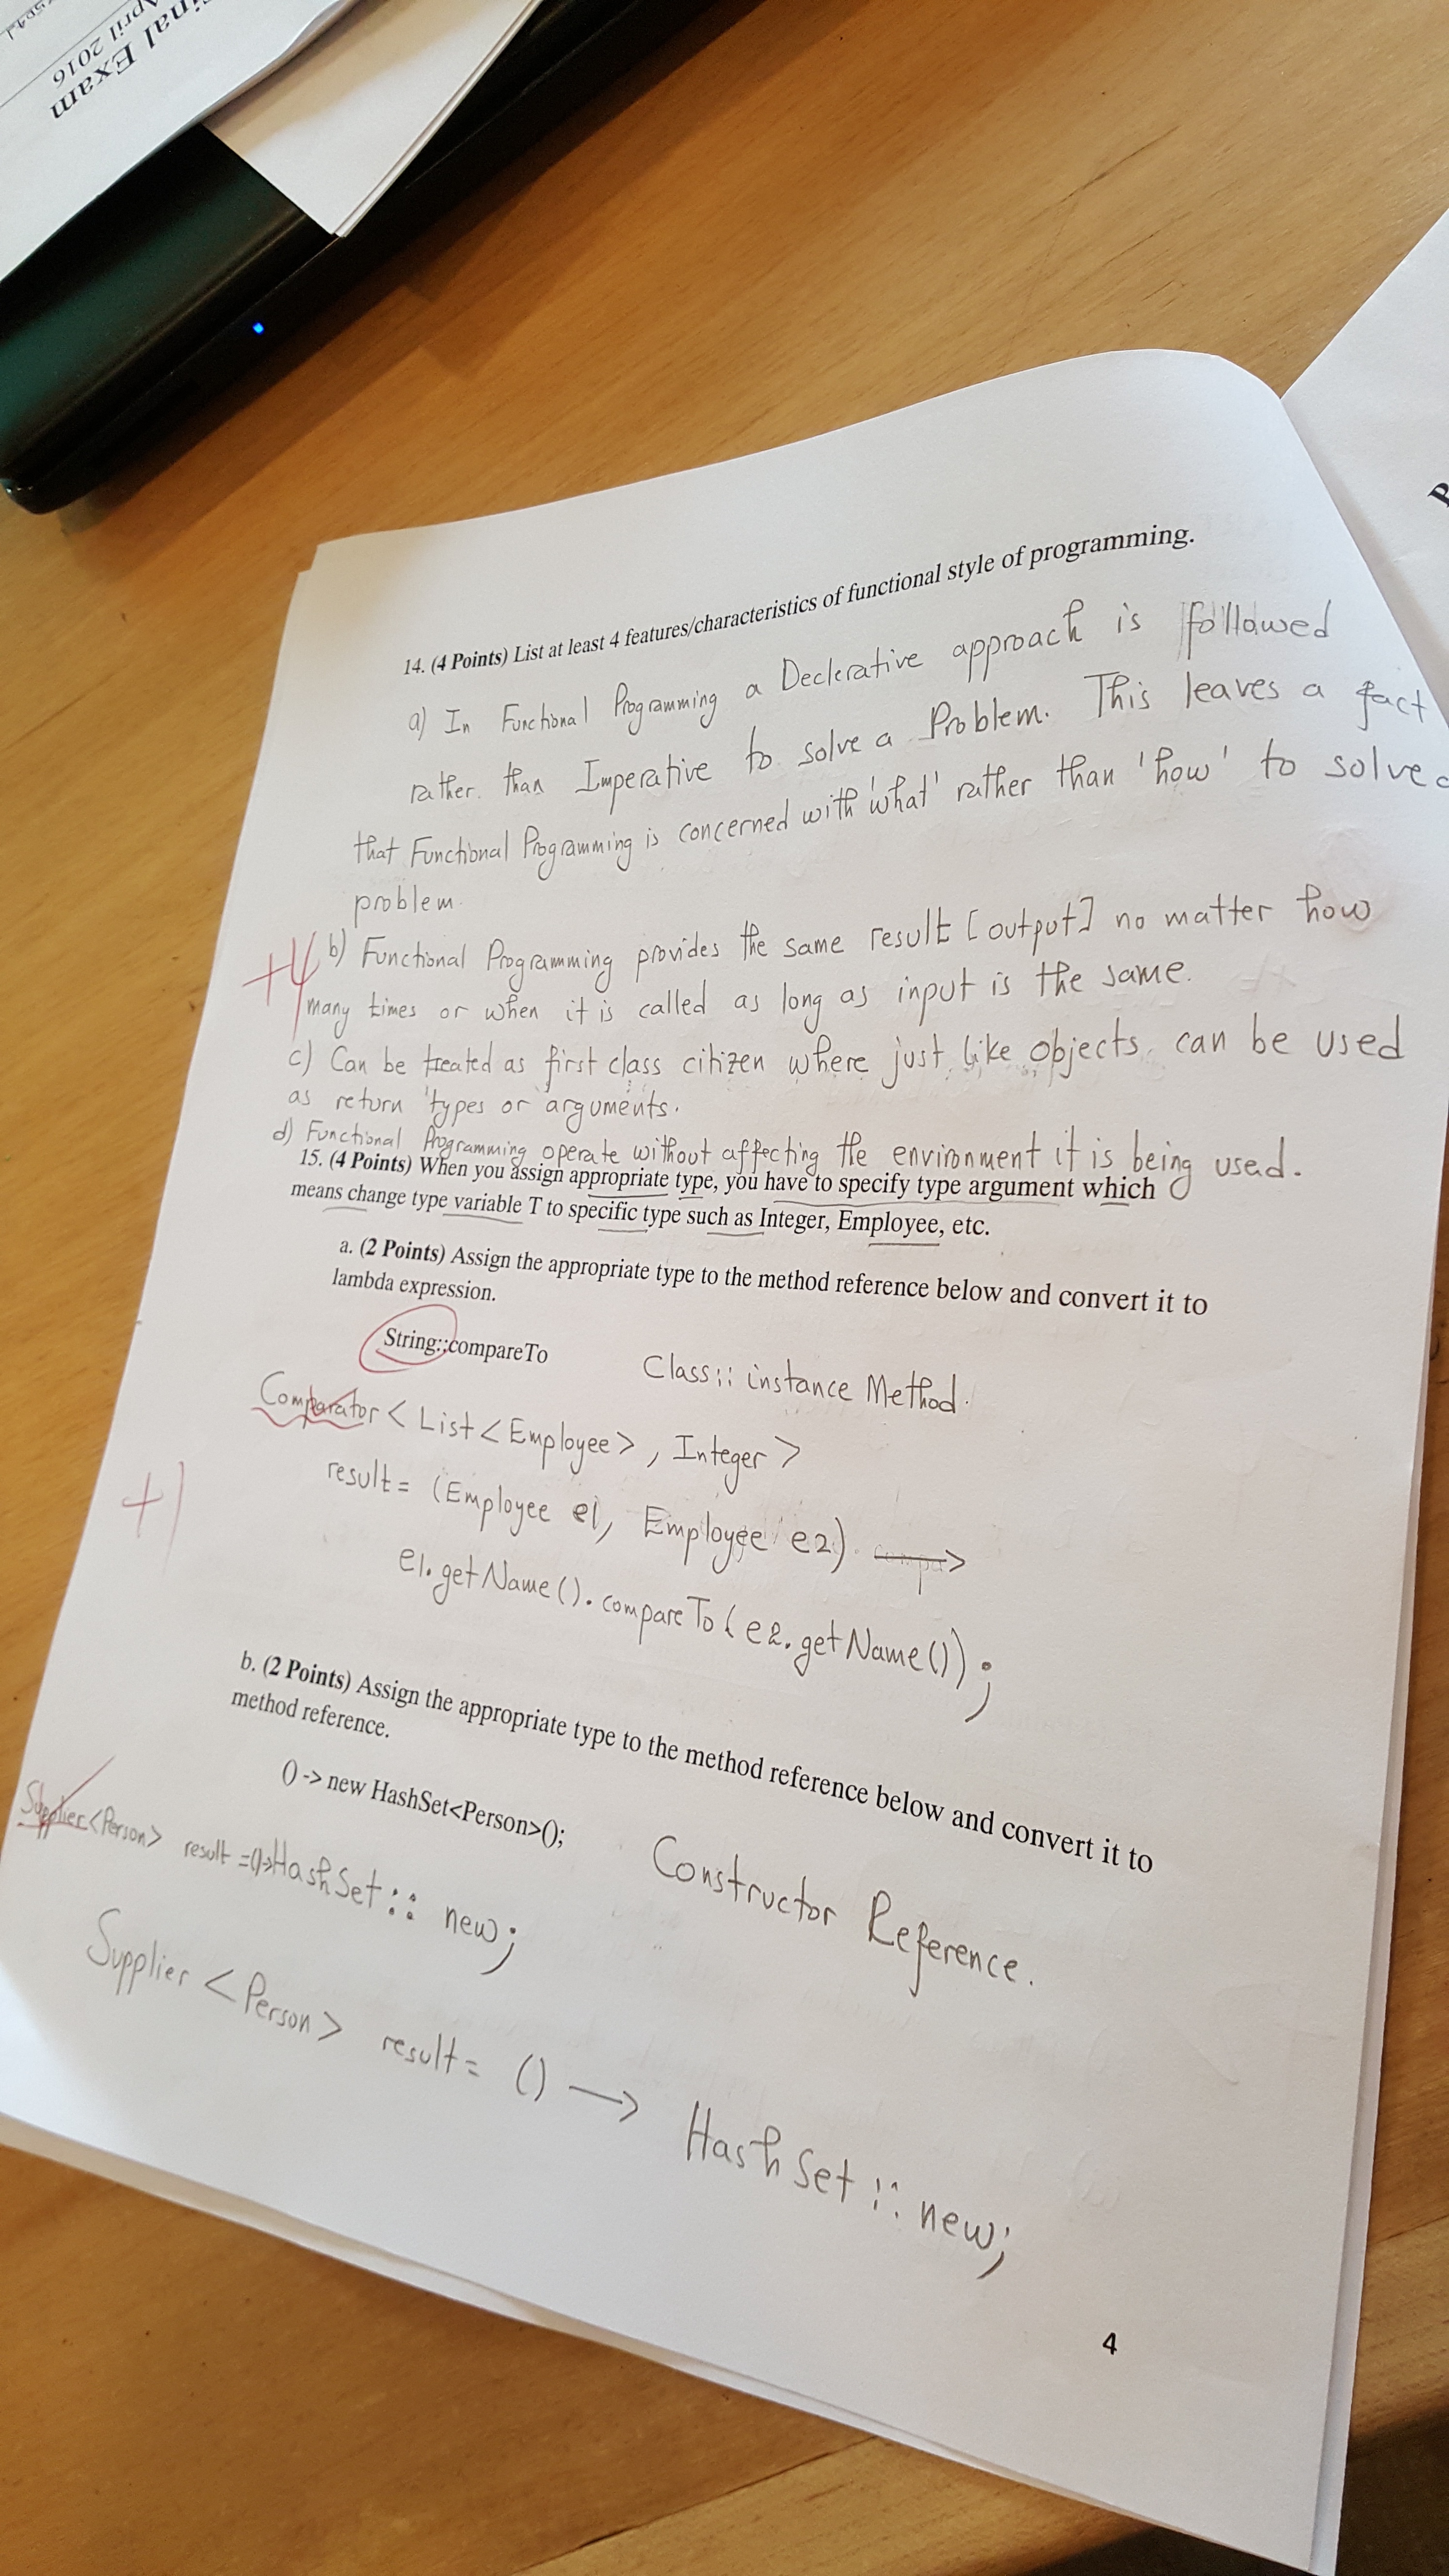 inal Exam
April 2016
14. (4 Points) List at least 4 features/characteristics of functional style of programming.
a) In Functional Programming a Declerative approach is followed
rather than Imperative to solve a Problem. This leaves a fact
that Functional Programming is concerned with 'what' rather than 'how' to solve
problem.
+4
b) Functional Programming provides the same result [output] no matter how
many times or when it is called as long as input is the same.
c) Can be treated as first class citizen where just like objects can be used
as return types or arguments.
d) Functional Programming operate without affecting the environment it is being used.
15. (4 Points) When you assign appropriate type, you have to specify type argument which
means change type variable T to specific type such as Integer, Employee, etc.
a. (2 Points) Assign the appropriate type to the method reference below and convert it to
lambda expression.
String::compareTo
Class:: instance Method.
Comparator < List < Employee > , Integer >
+1
result = (Employee e1, Employee e2) →
e1.getName().compareTo(e2.getName());
b. (2 Points) Assign the appropriate type to the method reference below and convert it to
method reference.
() -> new HashSet<Person>();
Constructor Reference.
Supplier <Person> result =()→HashSet:: new;
Supplier <Person> result = () → HashSet :: new;
4